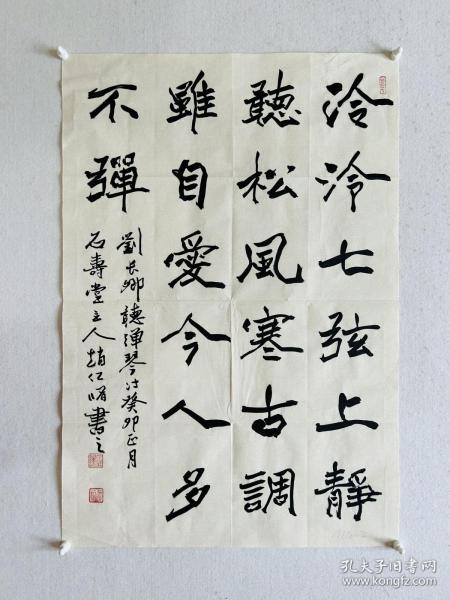 泠泠七弦上靜
聽松風寒古調
雖自愛今人多
不彈
劉長卿聽彈琴诗癸卯正月
石壽堂主人趙仁晴書之
孔夫子旧书网
www.kongfz.com